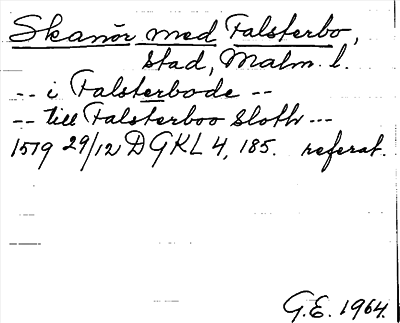 Skanör med Falsterbo,
stad, Malm. l.
-- i Falsterbode --
-- till Falsterboo Sloth ---
1519 29/12 DGKL 4, 185. referat.
G.E. 1964.